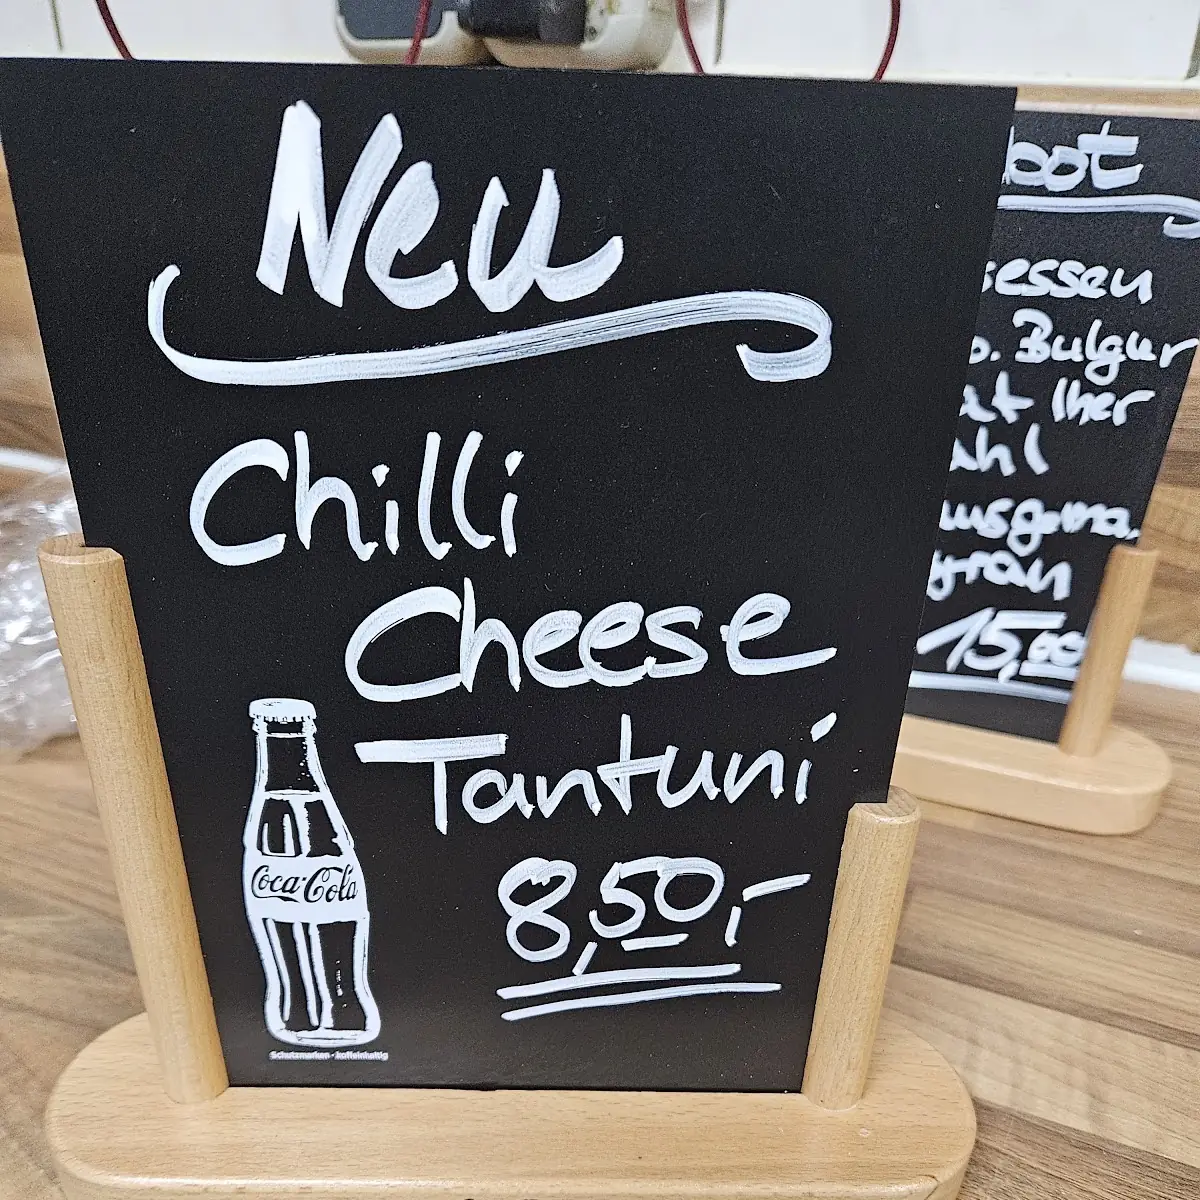 Neu
Chilli
Cheese
Tantuni
8,50,-
Coca-Cola
Schutzmarken · koffeinhaltig
bot
sessen
o. Bulgur
at Iher
ahl
ausgema.
yran
15,00